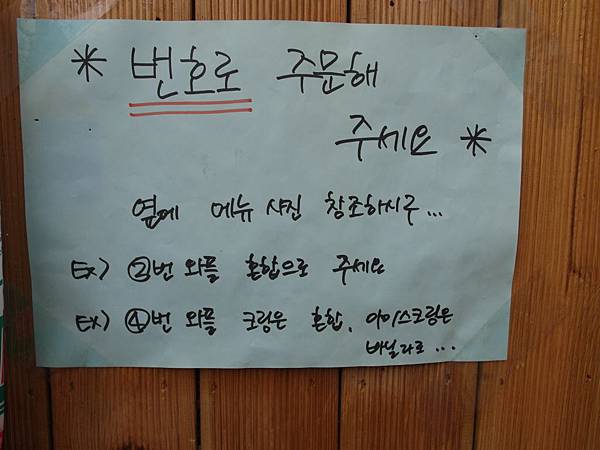 * 번호로 주문해
주세요 *
옆에 메뉴 사진 창조하시구...
Ex) ②번 와플 혼합으로 주세요
Ex) ④번 와플 크림은 혼합, 아이스크림은
바닐라로...